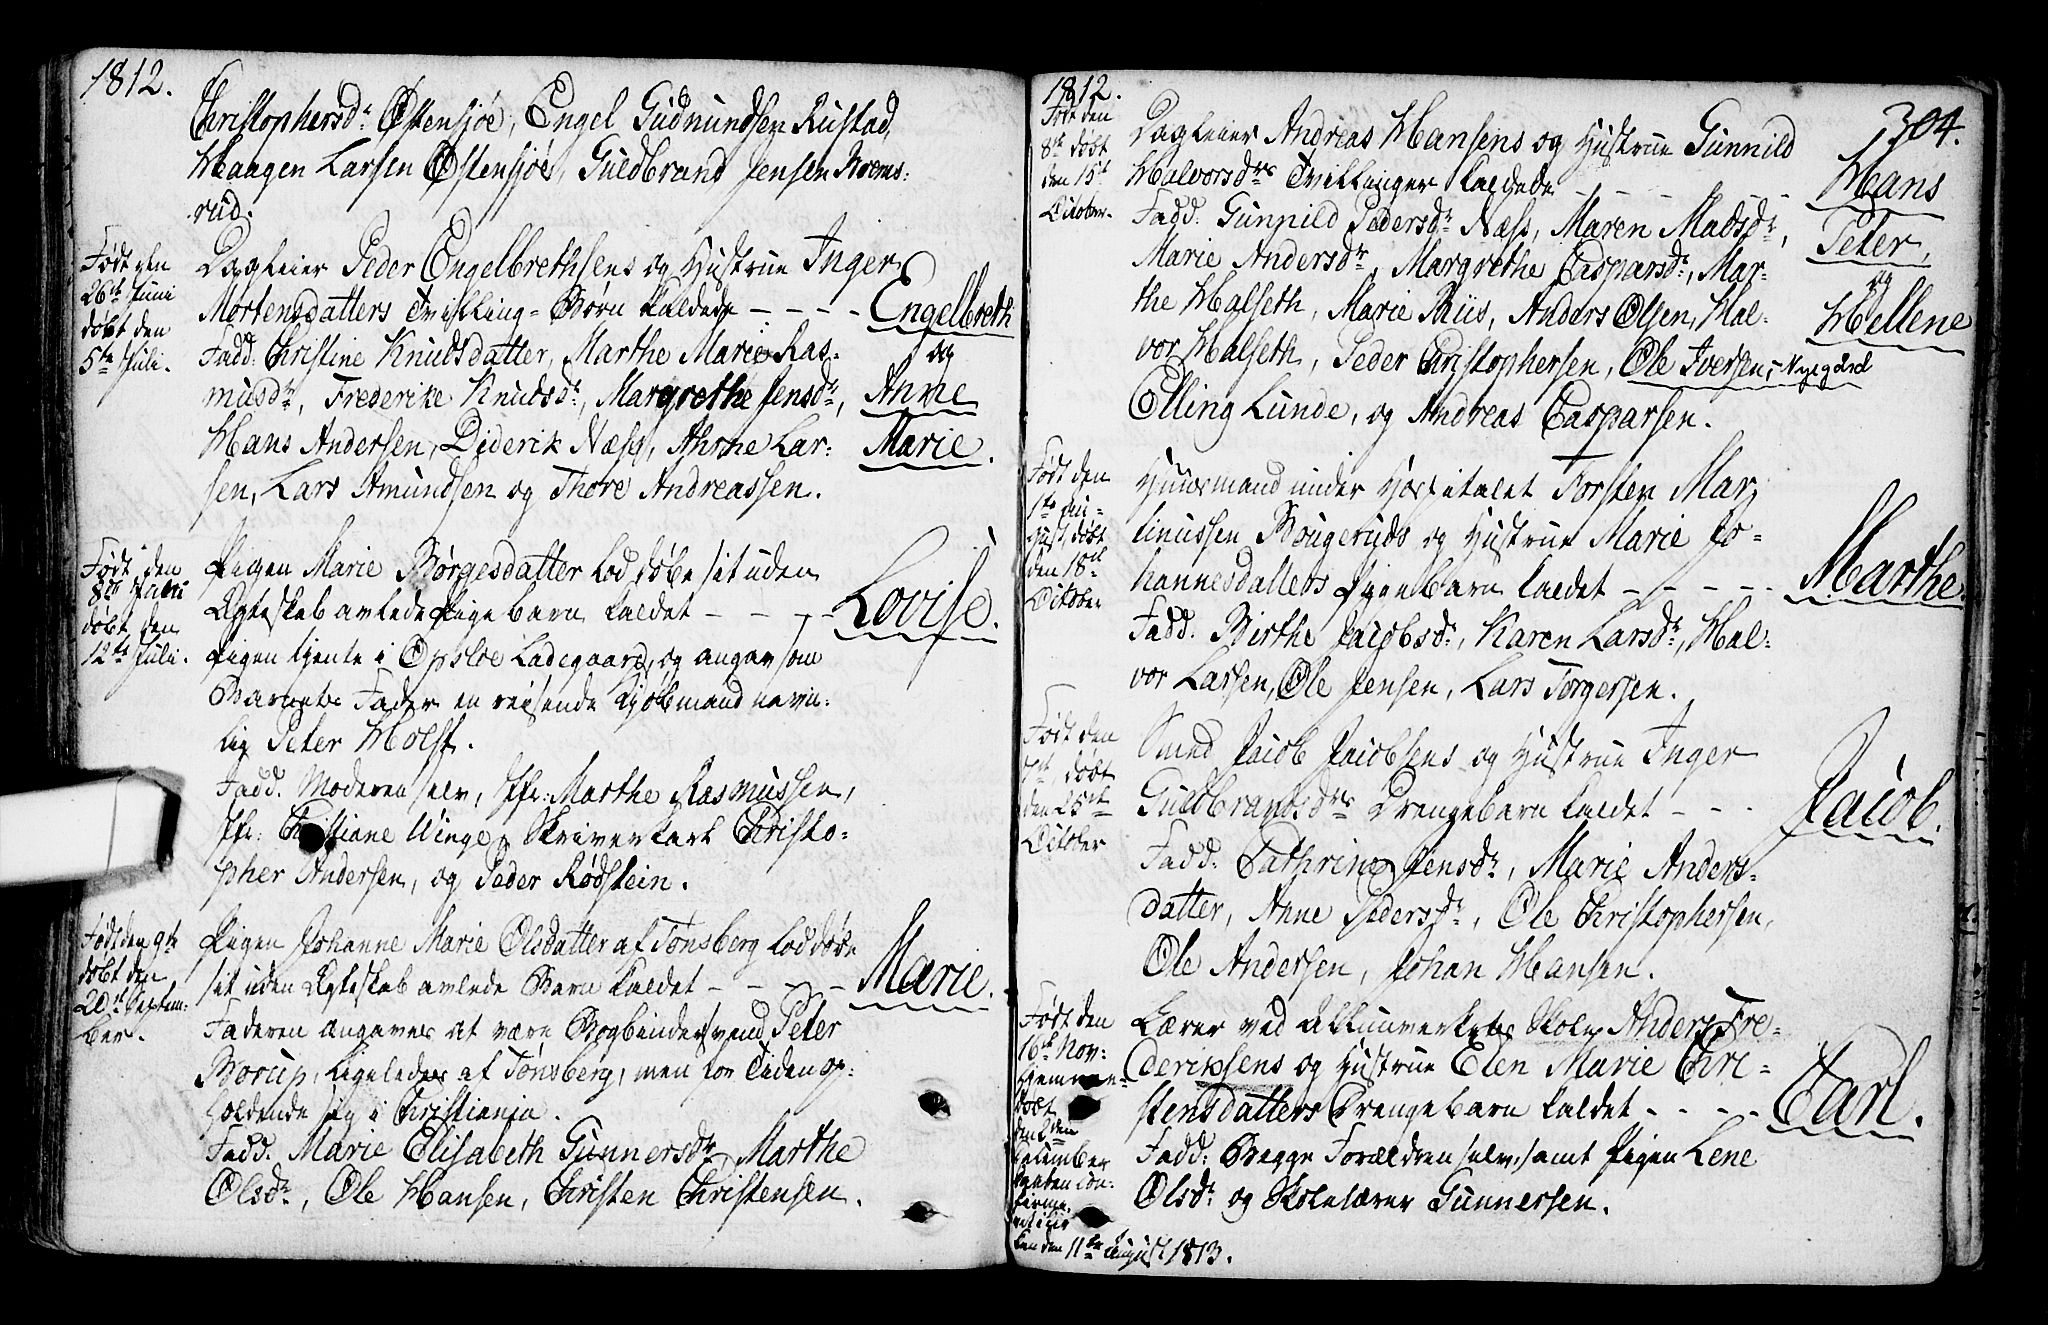 1812.
Christophersdr Østensjøe, Engel Gudmundsen Rustad,
Haagen Larsen Østensjøe, Guldbrand Jensen Broms:
rud.
Født den
26te Juni
døbt den
5te Juli.
Dagleier Peder Engelbrethsens og Hustrue Inger
Mortensdatters Tvilling-Børn kaldede - - - - Engelbreth
Fadd: Christine Knudsdatter, Marthe Marie Ras- og
musdr, Frederike Knudsdr, Margrethe Jensdr, Anne
Hans Andersen, Diderik Næss, Lar- Marie.
sen, Lars Amundsen og Thore Andreassen.
Født den
8de Juni
døbt den
12te Juli.
Pigen Marie Børgesdatter lod døbe sit uden
Ægteskab avlede Pigebarn kaldet - - - - Lovise.
Pigen tjente i Opsloe Ladegaard, og angav som
Barnets Fader en reisende Kjøbmand navn:
lig Peter Holst.
Fadd. Moderen selv, Jfr: Marthe Rasmussen,
Jfr: Christiane Winge, Skriverkarl Christo-
pher Andersen, og Peder Rødstein.
Født den 9de
døbt den
20de Septem:
ber.
Pigen Johanne Marie Olsdatter af Tønsberg lod døbe
sit uden Ægteskab avlede Barn kaldet - - - - Marie.
Faderen angaves at være Bogbindersvend Peter
Borup, ligeledes af Tønsberg, men for Tiden op:
holdende sig i Christiania.
Fadd. Marie Elisabeth Gunnersdr, Marthe
Olsdr, Ole Hansen, Christen Christensen.
1812.
304.
Født den
8de døbt
den 15de
October.
Dagleier Andreas Hansens og Hustrue Gunnild
Halvorsdrs Tvillinger kaldede - - - - - Hans
Fadd: Gunnild Pedersdr Næss, Maren Madsdr, Peter,
Marie Andersdr, Margrethe Caspersdr, Mar- og
the Halseth, Marie Riis, Anders Olsen, Hal- Hellene
vor Halseth, Peder Christophersen, Ole Iversen, Nygaard
Elling Lunde, og Andreas Casparsen.
Født den
1te Au-
gust, døbt
den 18de
October
Huusmand under Hospitalet Torsten Mar-
tinussen Bougeruds og Hustrue Marie Jo-
hannesdatters Pigebarn kaldet - - - - - Marthe.
Fadd. Birthe Jacobsdr, Karen Larsdr, Hal-
vor Larsen, Ole Jensen, Lars Torgersen.
Født den
7de, døbt
den 25de
October
Smed Jacob Jacobsens og Hustrue Inger
Guldbrandsdrs Drengebarn kaldet - - - Jacob.
Fadd: Cathrine Jensdr, Marie Anders-
datter, Anne Pedersdr, Ole Christophersen,
Ole Andersen, Johan Hansen.
Født den
16de Nov:
Hjemme-
døbt
den 2den
December
Daaben con-
firme-
ret i Kir
ken den 11te August 1813.
Lærer ved Allunverkets Skole Anders Fre-
deriksens og Hustrue Elen Marie Chri-
stensdatters Drengebarn kaldet - - - - Carl.
Fadd: Begge Forældren selv, samt Pigen Lene
Olsdr og Skolelærer Gunnersen.